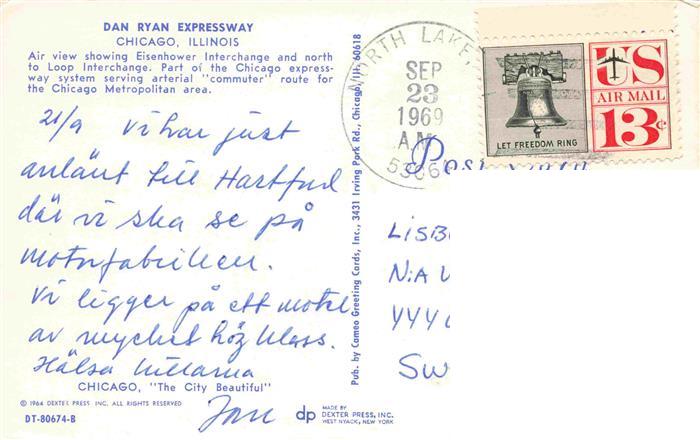 DAN RYAN EXPRESSWAY
CHICAGO, ILLINOIS
Air view showing Eisenhower Interchange and north
to Loop Interchange. Part of the Chicago express-
way system serving arterial "commuter" route for
the Chicago Metropolitan area.
21/9 Vi har just
anlänt till Hartford
där vi ska se på
motorfabriken.
Vi ligger på ett motel
av mycket hög klass.
Hälsa
CHICAGO, "The City Beautiful"
© 1964 DEXTER PRESS INC. ALL RIGHTS RESERVED
DT-80674-B
dp MADE BY
DEXTER PRESS, INC.
WEST NYACK, NEW YORK
Pub. by Cameo Greeting Cards, Inc., 3431 Irving Park Rd., Chicago, Ill. 60618
NORTH LAKE,
SEP
23
1969
A.M.
LET FREEDOM RING
US
AIR MAIL
13c
Post
LISB
N:A
SW